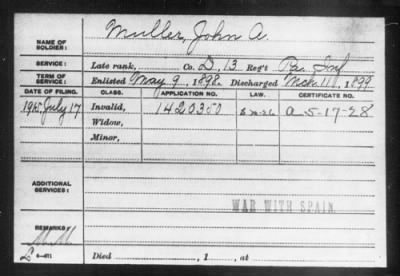 NAME OF SOLDIER: Muller, John A.
SERVICE: Late rank, Co. D, 13 Reg't Pa. Inf
TERM OF SERVICE: Enlisted May 9, 1898. Discharged Mch. 11, 1899
DATE OF FILING. CLASS. APPLICATION NO. LAW. CERTIFICATE NO.
July 17 Invalid, 1420350 A-5-17-28
Widow,
Minor,
ADDITIONAL SERVICES:
WAR WITH SPAIN
REMARKS:
Died , 1 , at